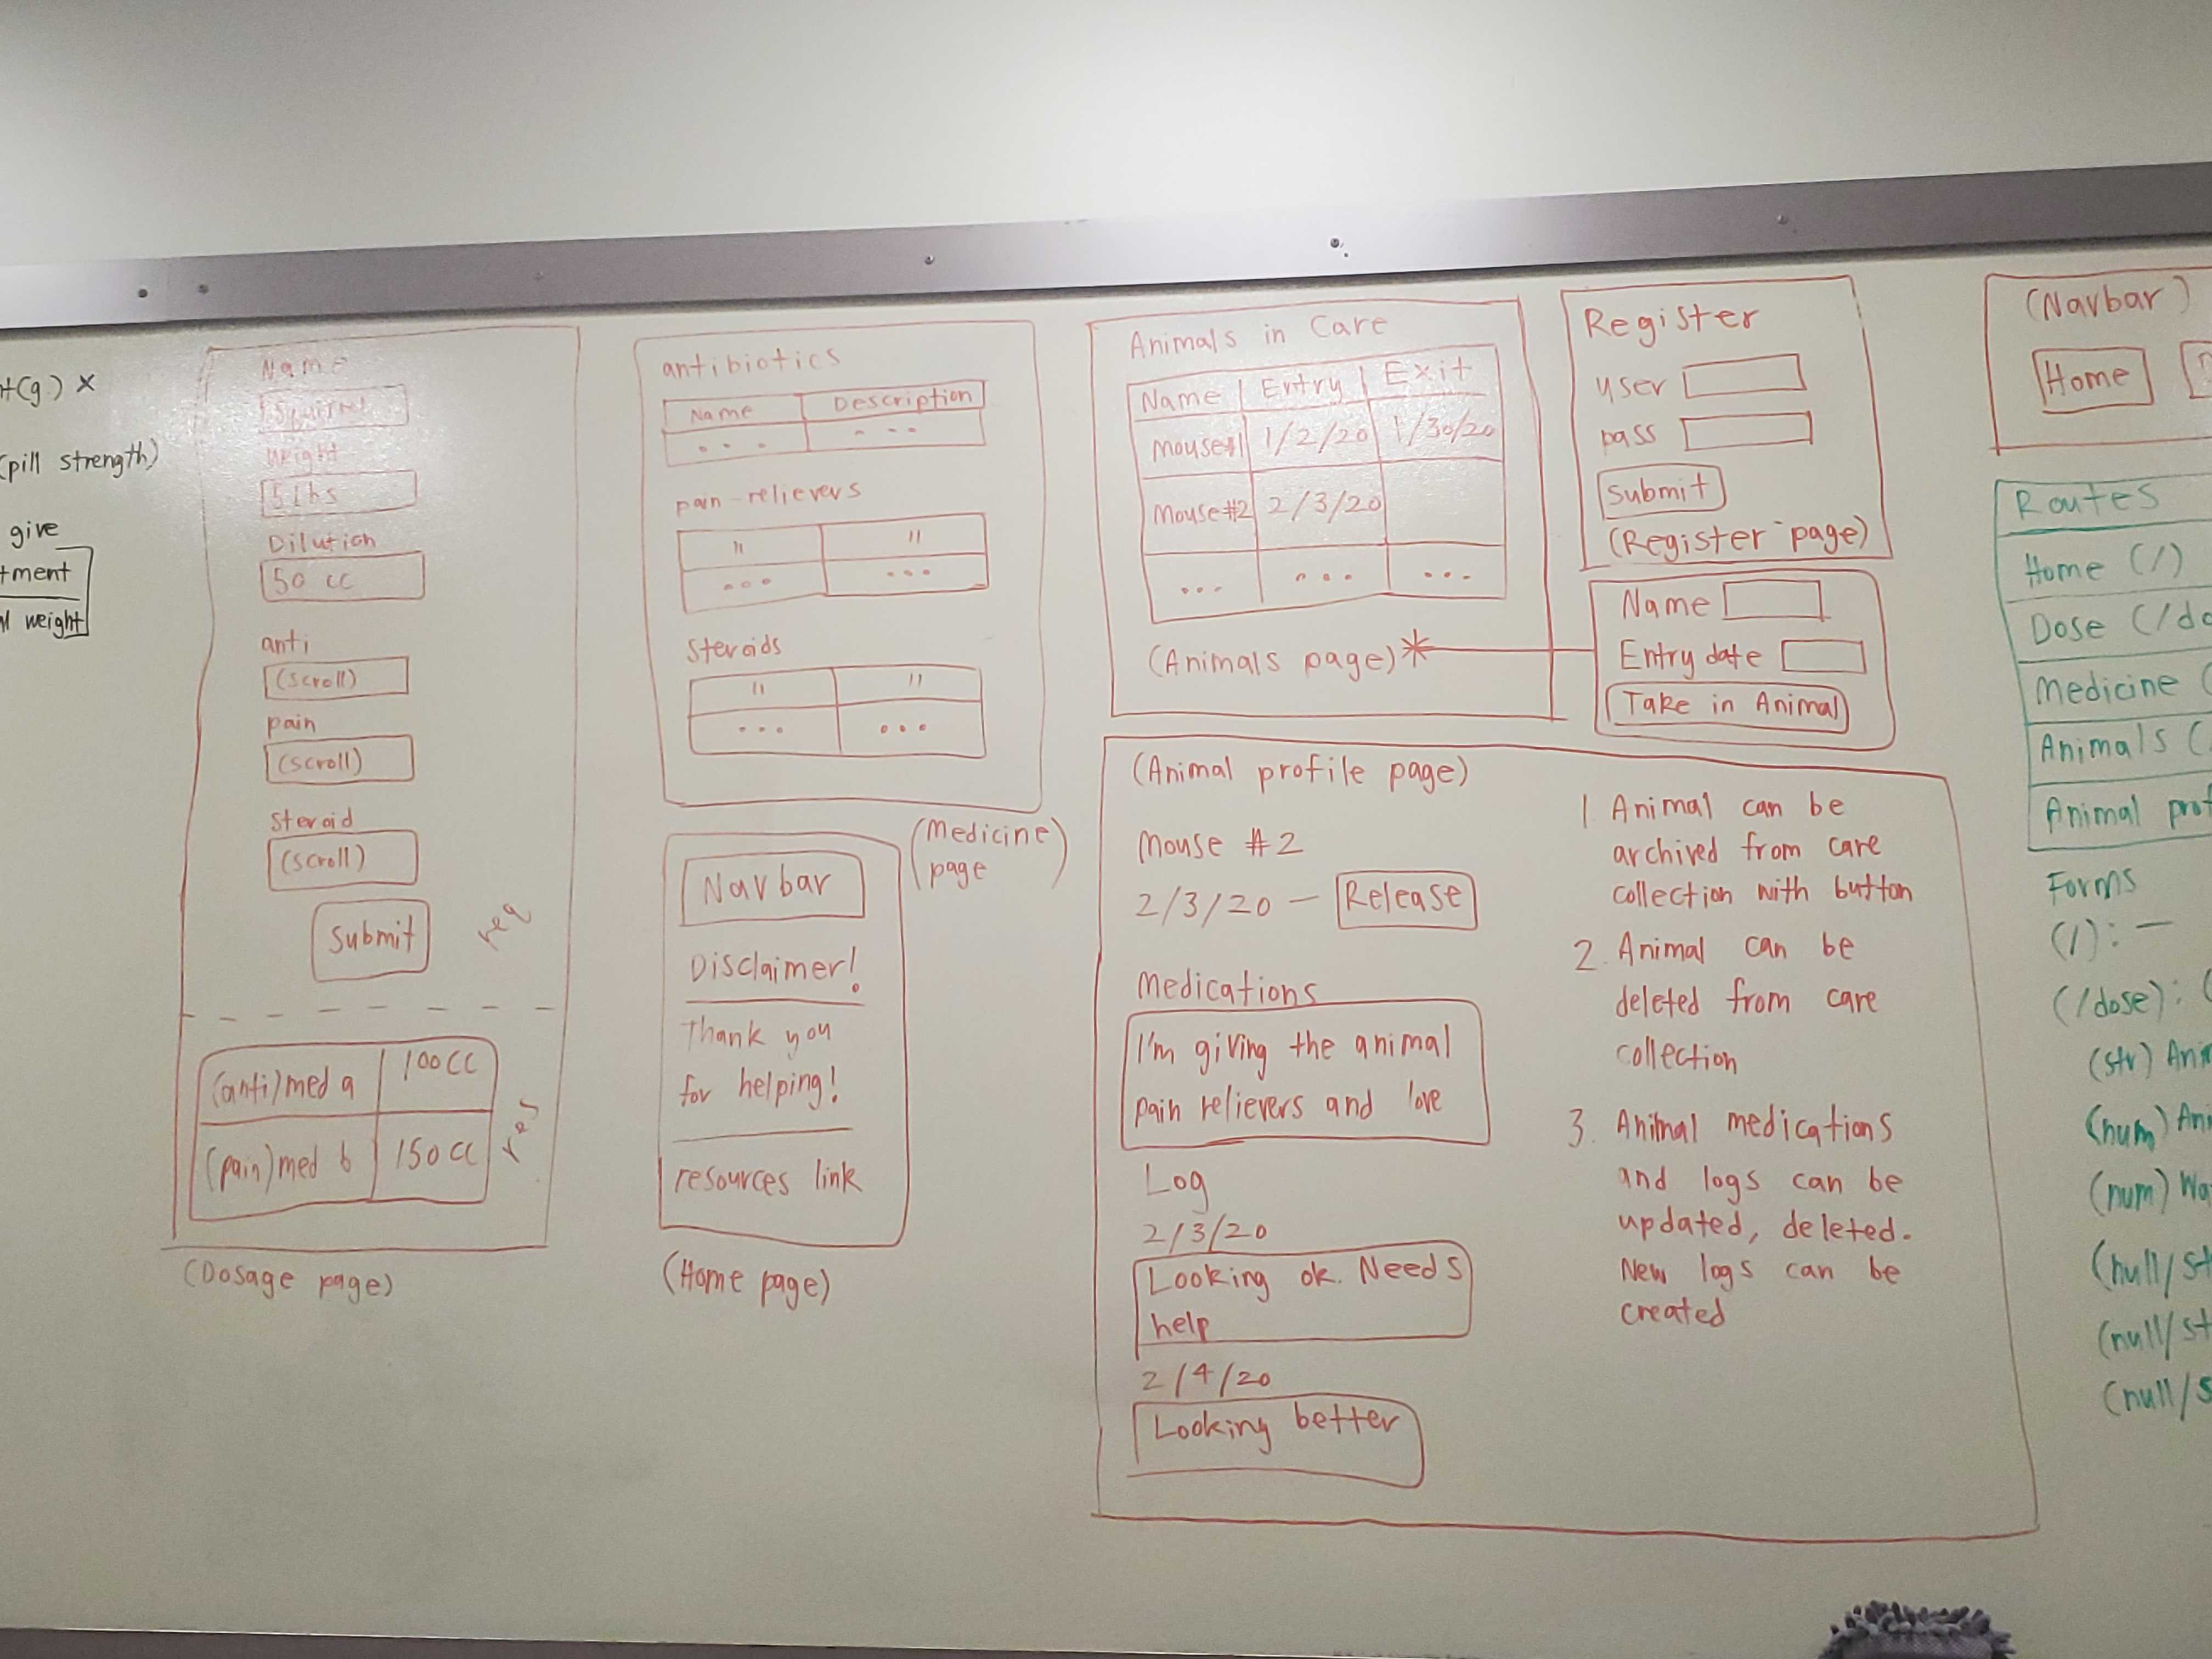 (g.) x
(pill strength)
give
tment
weight
Name
Squirrel
Weight
5 lbs
Dilution
50 cc
anti
(scroll)
pain
(scroll)
steroid
(scroll)
Submit
req
(anti) med a 100 cc
(pain) med b 150 cc
res
(Dosage page)
antibiotics
Name Description
• • • • • •
pain-relievers
" "
• • • • • •
Steroids
" "
• • • • • •
(Medicine
page)
Navbar
Disclaimer!
Thank you
for helping!
resources link
(Home page)
Animals in Care
Name Entry Exit
Mouse#1 1/2/20 1/30/20
Mouse#2 2/3/20
... ... ...
(Animals page)*
Register
user
pass
Submit
(Register page)
Name
Entry date
Take in Animal
(Animal profile page)
Mouse #2
2/3/20 — Release
Medications
I'm giving the animal
pain relievers and love
Log
2/3/20
Looking ok. Needs
help
2/4/20
Looking better
1. Animal can be
archived from care
collection with button
2. Animal can be
deleted from care
collection
3. Animal medications
and logs can be
updated, deleted.
New logs can be
created
(Navbar)
Home
Routes
Home (/)
Dose (/do
Medicine (
Animals (
Animal prof
Forms
(/): —
(/dose): (
(str) Ani
(num) Ani
(num) Wa
(null/st
(null/st
(null/s